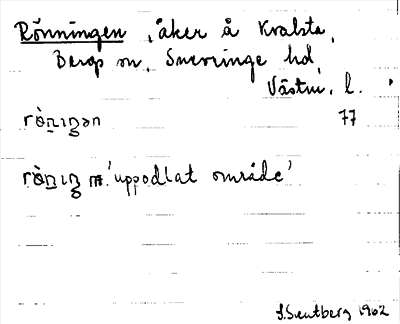 Rönningen, åker å Kvalsta,
Bergs sn, Snevringe hd,
Västm. l.
77
rö̀nıŋən
rö̀nıŋ m. 'uppodlat område'
1902